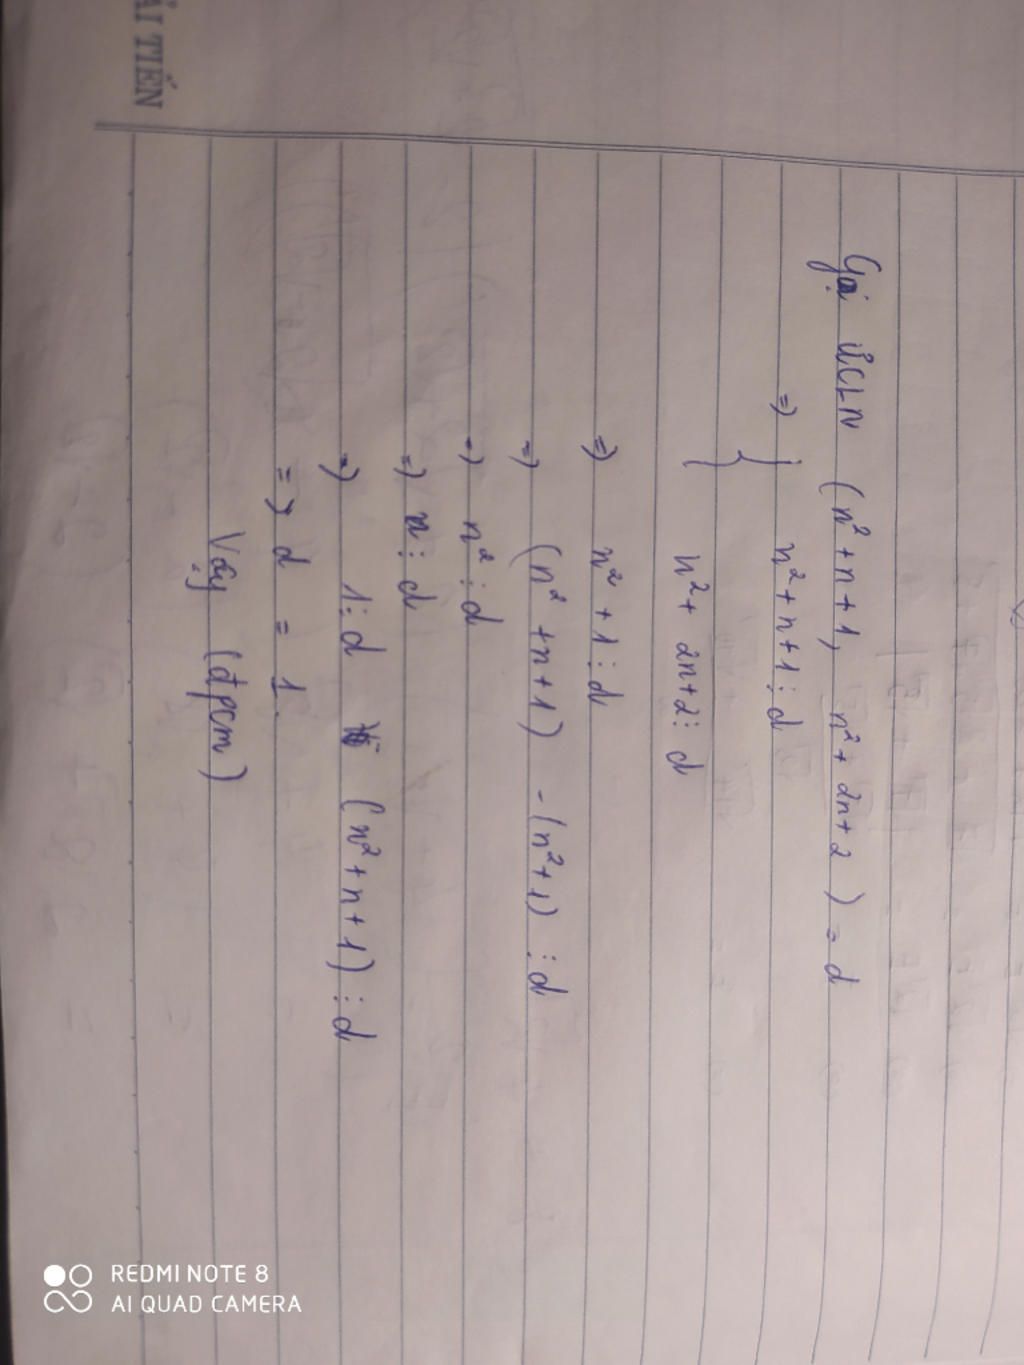 ẢI TIẾN
Gọi ƯCLN (n² + n + 1, n² + 2n + 2) = d
=> { n² + n + 1 ⋮ d
n² + 2n + 2 ⋮ d
=> n² + 1 ⋮ d
=> (n² + n + 1) - (n² + 1) ⋮ d
=> n² ⋮ d
=> n ⋮ d
=> 1 ⋮ d (n² + n + 1) ⋮ d
=> d = 1.
Vậy (đpcm)
REDMI NOTE 8
AI QUAD CAMERA